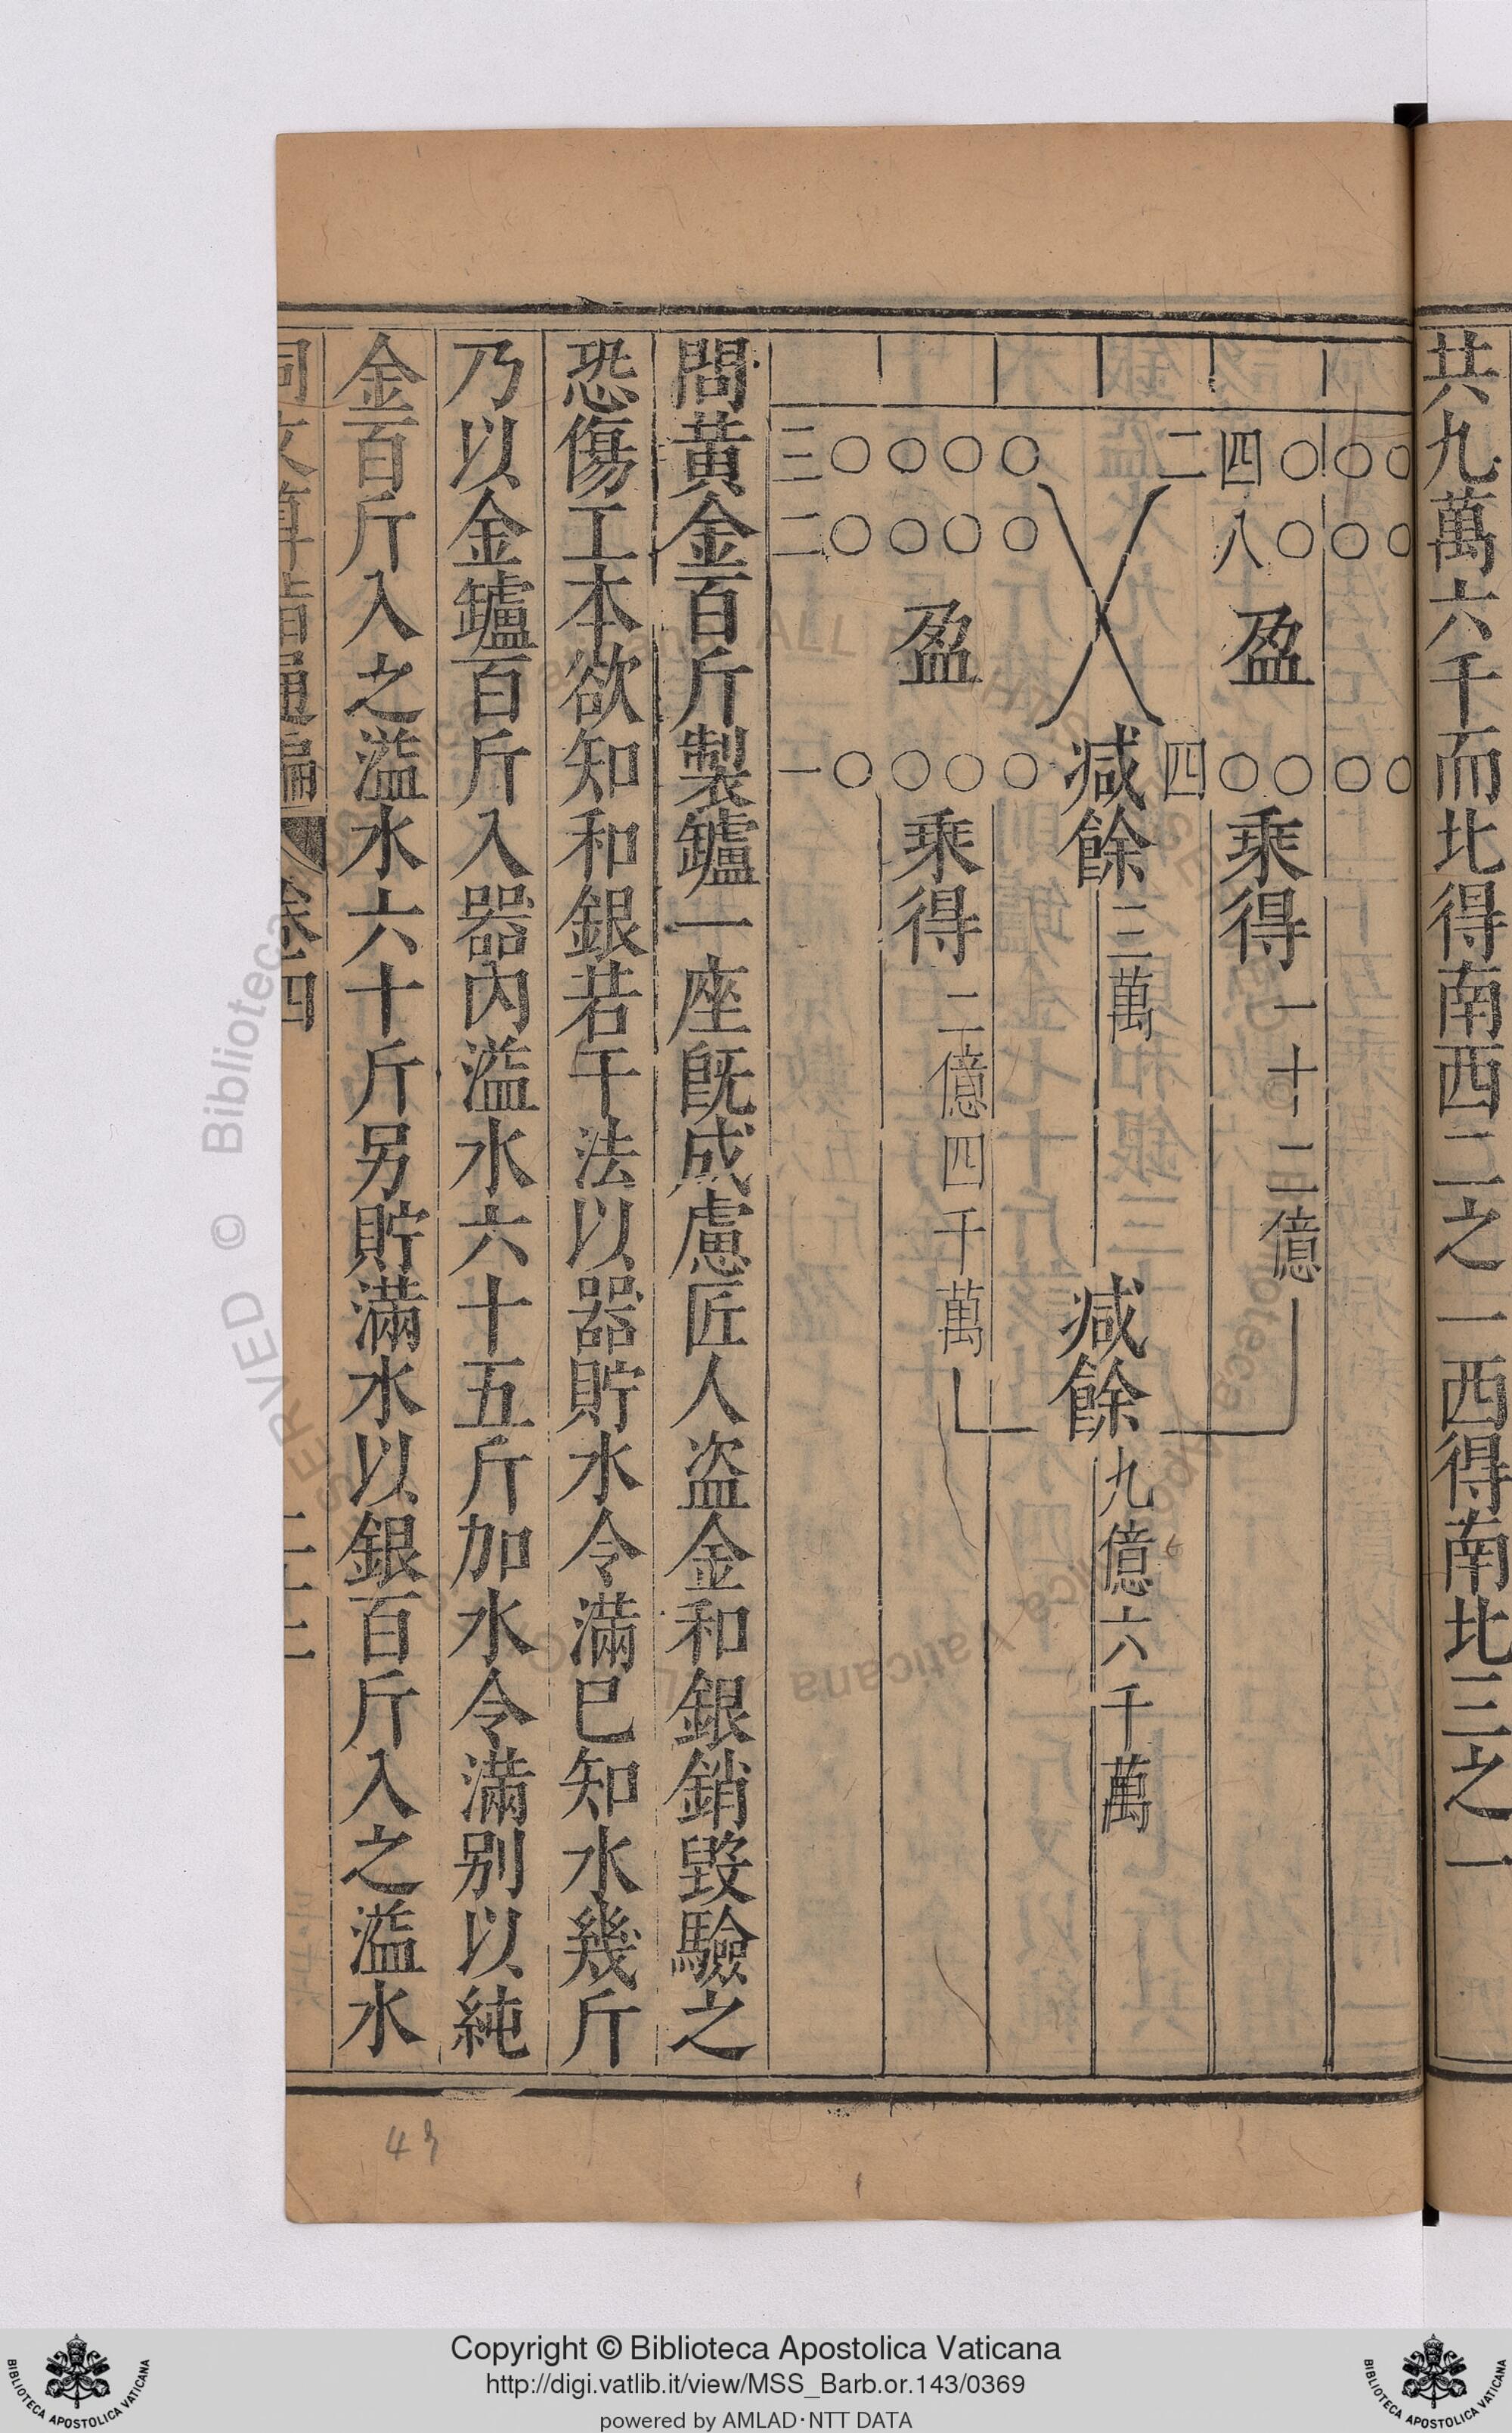 共九萬六千而北得南西二之一西得南北三之一
二四〇〇〇
八〇〇〇
盈
四〇〇〇〇
乘得一十二億
減餘三萬
減餘九億六千萬
三〇〇〇〇
二〇〇〇〇
盈
一〇〇〇〇
乘得二億四千萬
問黃金百斤製鑪一座既成慮匠人盜金和銀銷毀驗之
恐傷工本欲知和銀若干法以器貯水令滿巳知水幾斤
乃以金鑪百斤入器內溢水六十五斤加水令滿别以純
金百斤入之溢水六十斤另貯滿水以銀百斤入之溢水
同文算指通編 卷四 二十七
43
RVED © Biblioteca
ALL
Vaticana
Copyright © Biblioteca Apostolica Vaticana
http://digi.vatlib.it/view/MSS_Barb.or.143/0369
powered by AMLAD·NTT DATA
BIBLIOTECA APOSTOLICA VATICANA
BIBLIOTECA APOSTOLICA VATICANA